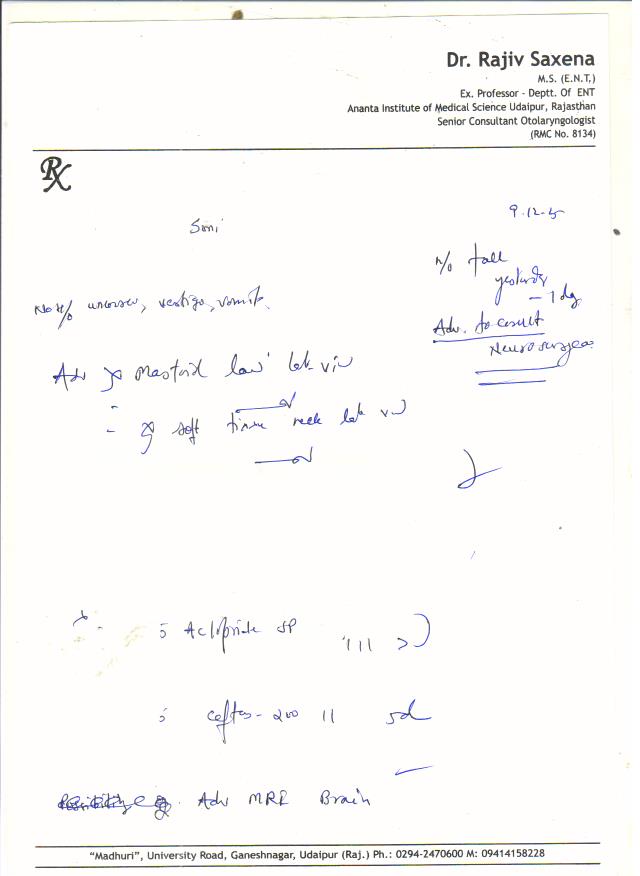 Dr. Rajiv Saxena
M.S. (E.N.T,)
Ex. Professor - Deptt. Of ENT
Ananta Institute of Medical Science Udaipur, Rajasthan
Senior Consultant Otolaryngologist
(RMC No. 8134)
Rx
9.12.
h/o fall
yesterday
- 1 day
Adv. to consult
Neurosurgeon
No h/o vertigo, vomit.
Adv Mastoid law' lat viw
- soft tissue neck lat viw
Aclopride SP 111
ceftas-200 11 5d
Adv MRI Brain
"Madhuri", University Road, Ganeshnagar, Udaipur (Raj.) Ph.: 0294-2470600 M: 09414158228